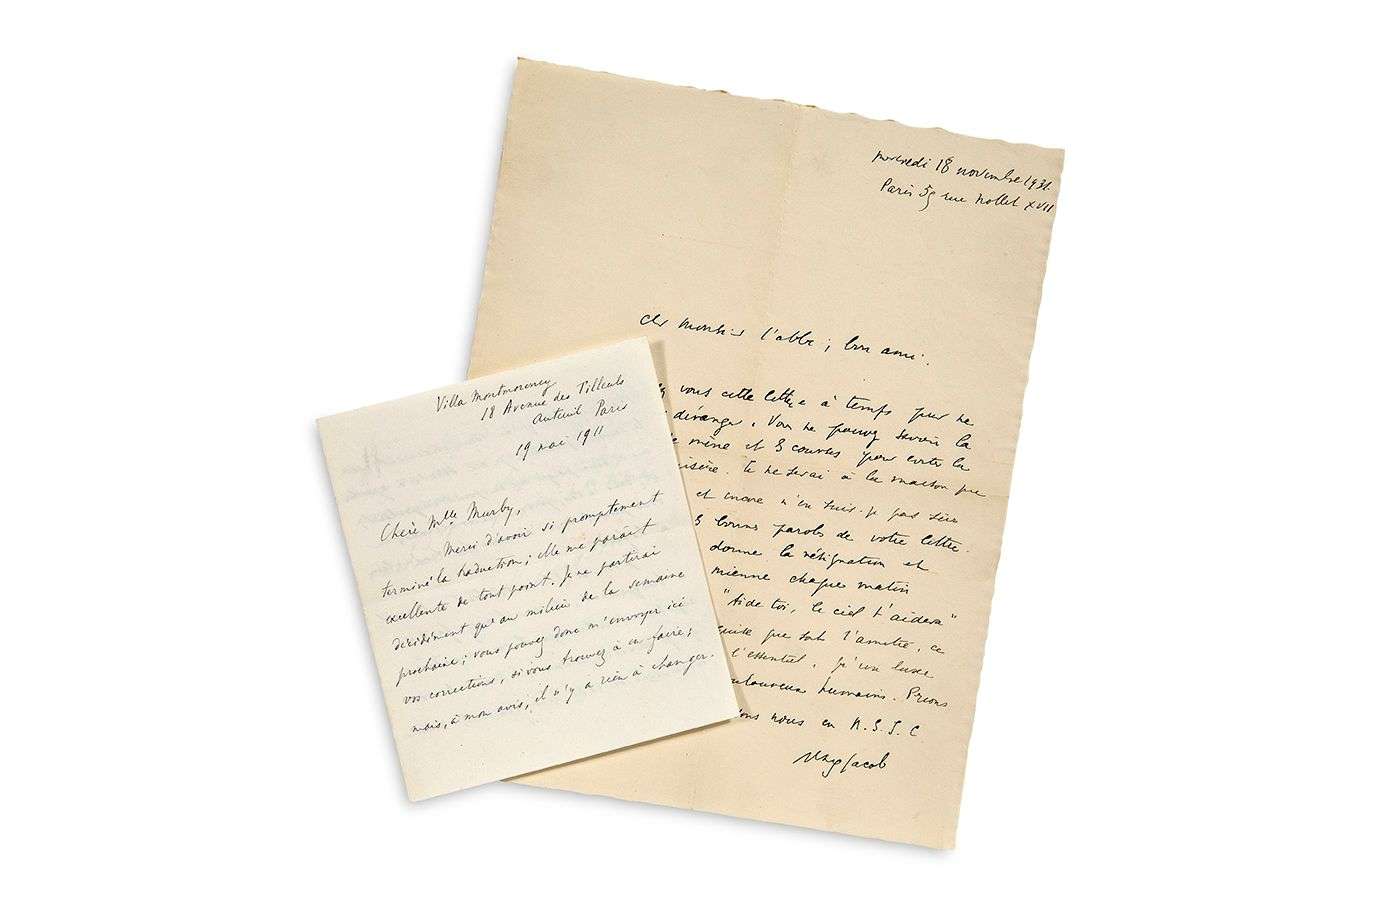 Villa Montmorency
18 Avenue des Tilleuls
Auteuil Paris
19 mai 1911
Chère Mlle Murby,
Merci d'avoir si promptement
terminé la traduction; elle me paraît
excellente de tout point. Je ne partirai
décidément qu'au milieu de la semaine
prochaine; vous pouvez donc m'envoyer ici
vos corrections, si vous trouvez à en faire;
mais, à mon avis, il n'y a rien à changer.
mercredi 18 novembre 1931.
Paris 55 rue Nollet XVII
Cher monsieur l'abbé, bon ami.
vous cette lettre à temps pour ne
déranger. Vous ne pouvez savoir la
mène et courses pour éviter la
misère. Je ne serai à la maison que
et encore n'en suis-je pas sûr
bonnes paroles de votre lettre.
donne la résignation et
mienne chaque matin
"Aide toi, le ciel t'aidera"
que soit l'amitié, ce
l'essentiel, qu'un luxe
douloureux humains. Prions
nous en N.S.J.C
Max Jacob